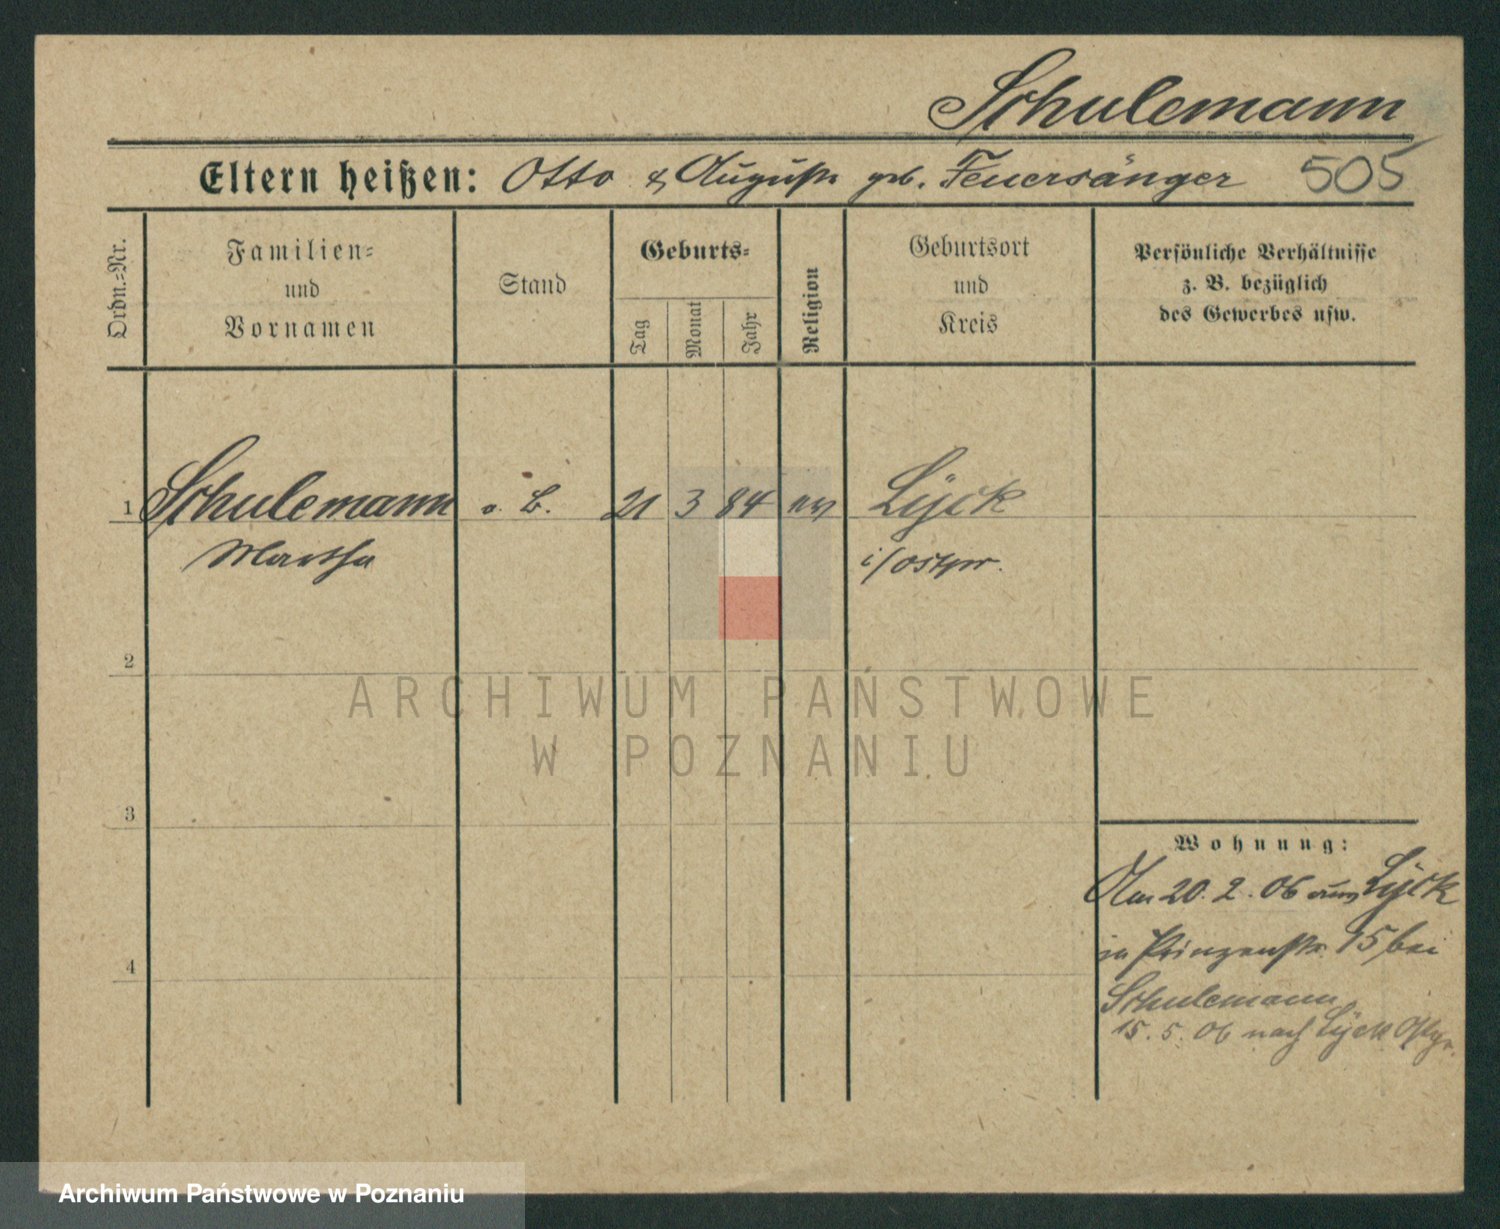 Schulemann
Eltern heißen: Otto & Auguste geb. Feuersänger 505
Ordn.=Nr.
Familien=
und
Vornamen
Stand
Geburts=
Tag
Monat
Jahr
Religion
Geburtsort
und
Kreis
Persönliche Verhältnisse
z. B. bezüglich
des Gewerbes usw.
1 Schulemann o. B. 21 3 84 ev Lyck
Martha i/Ostpr.
2
3
4
Wohnung:
Am 20. 2. 06 aus Lyck
in Prinzenstr. 15 bei
Schulemann
15. 5. 06 nach Lyck Ostpr.
ARCHIWUM PAŃSTWOWE
W POZNANIU
Archiwum Państwowe w Poznaniu